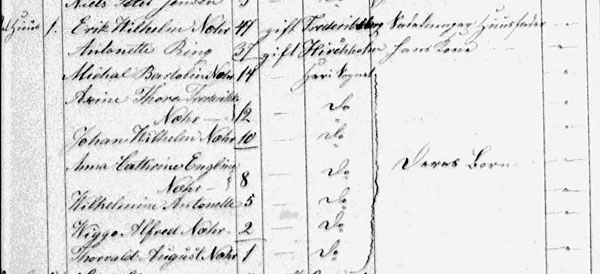 Niels Peter Jensen 3
Huus 1. Erik Wilhelm Nohr 47 gift Frederiksberg Sadelmager Huusfader
Antonette Bing 37 gift Hirschholm hans Kone
Michal Bartolin Nohr 14 "
Axine Thora Frederikke
Nohr 12 " Do
Johan Wilhelm Nohr 10 " Do
Anna Cathrine Engline
Nohr 8 " Do Deres Børn
Wilhelmine Antonette 5 " Do
Wiggo Alfred Nohr 2 " Do
Thorvald August Nohr 1 " Do